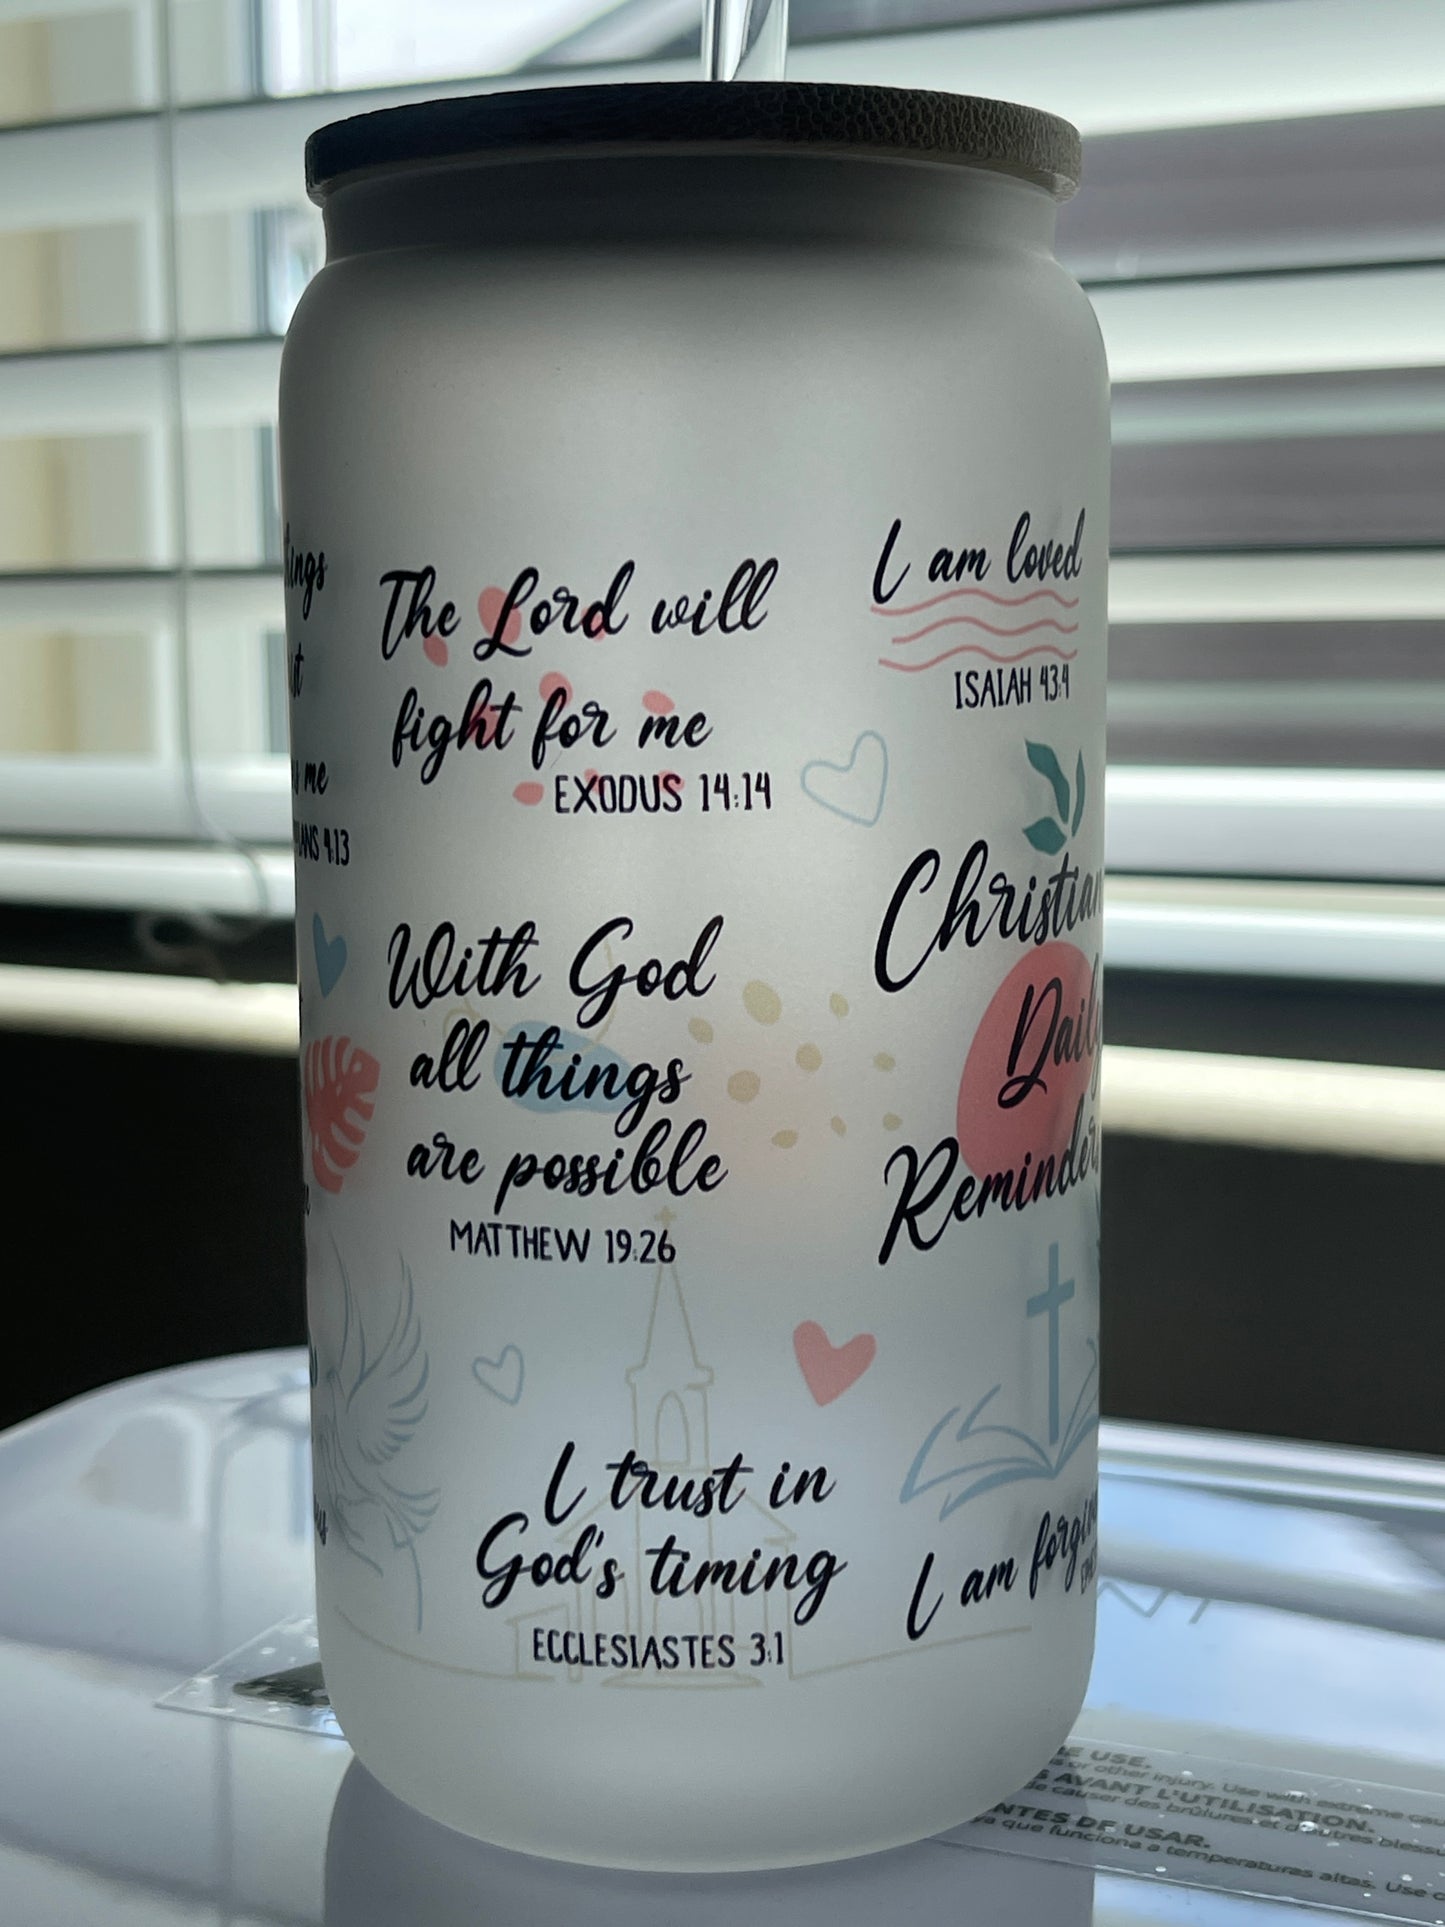 The Lord will
fight for me
EXODUS 14:14
I am loved
ISAIAH 43:4
me
4:13
With God
all things
are possible
MATTHEW 19:26
Christian
Daily
Reminder
I trust in
God's timing
ECCLESIASTES 3:1
I am
USE.
or other injury. Use with extreme
AVANT L'UTILISATION.
causer des brûlures et d'autres
DE USAR.
que funciona a temperaturas altas. Use